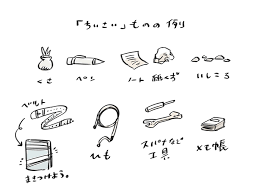 「ちいさい」ものの例
くさ
ペン
ノート
紙くず
いしころ
ベルト
まきつけよう。
ひも
スパナなど
工具
メモ帳